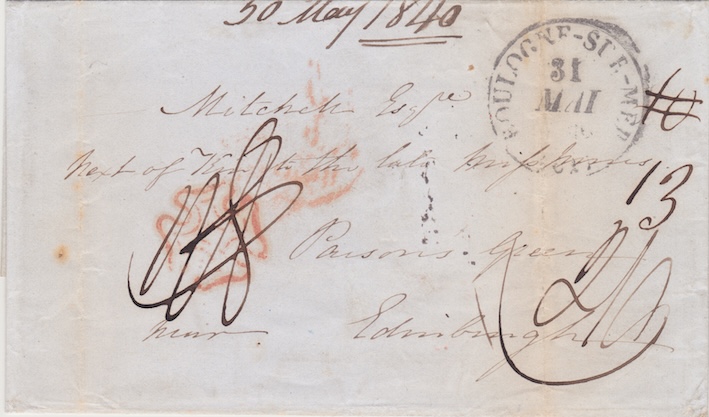 30 May 1840
BOULOGNE-SUR-MER
31
MAI
40
Mitchell Esqre
10
next of Kin to the late Miss Innes
13
Parson's Green
near Edinburgh